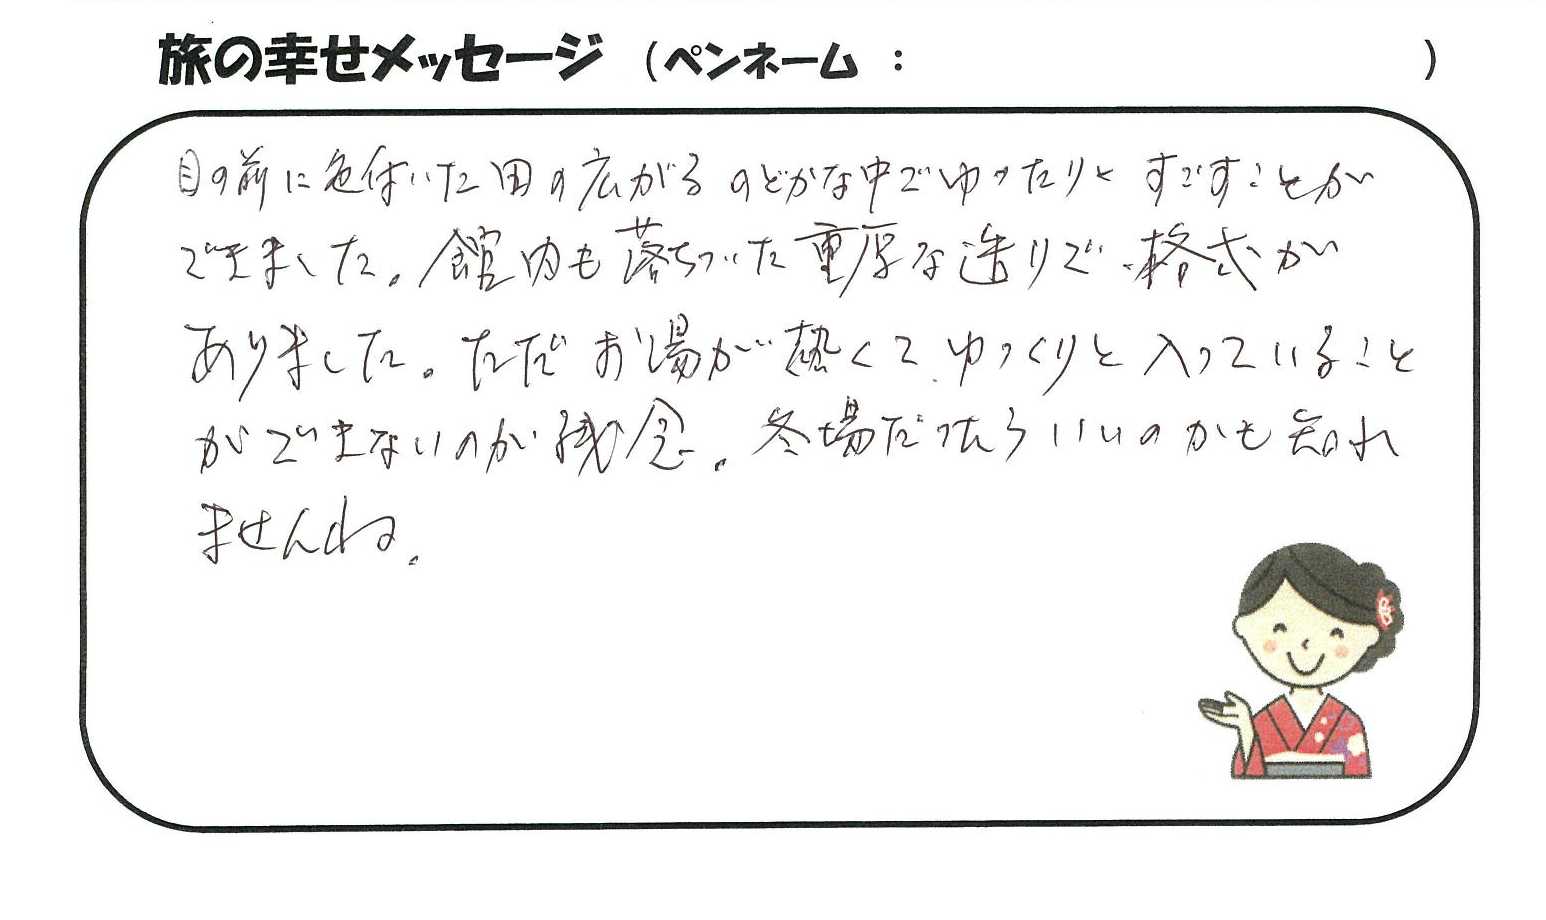 旅の幸せメッセージ （ペンネーム ： ）
目の前に色付いた田の広がるのどかな中でゆったりとすごすことが
できました。館内も落ちついた重厚な造りで、格式が
ありました。ただお湯が熱くて、ゆっくりと入っていること
ができないのが残念。冬場だったらいいのかも知れ
ませんね。